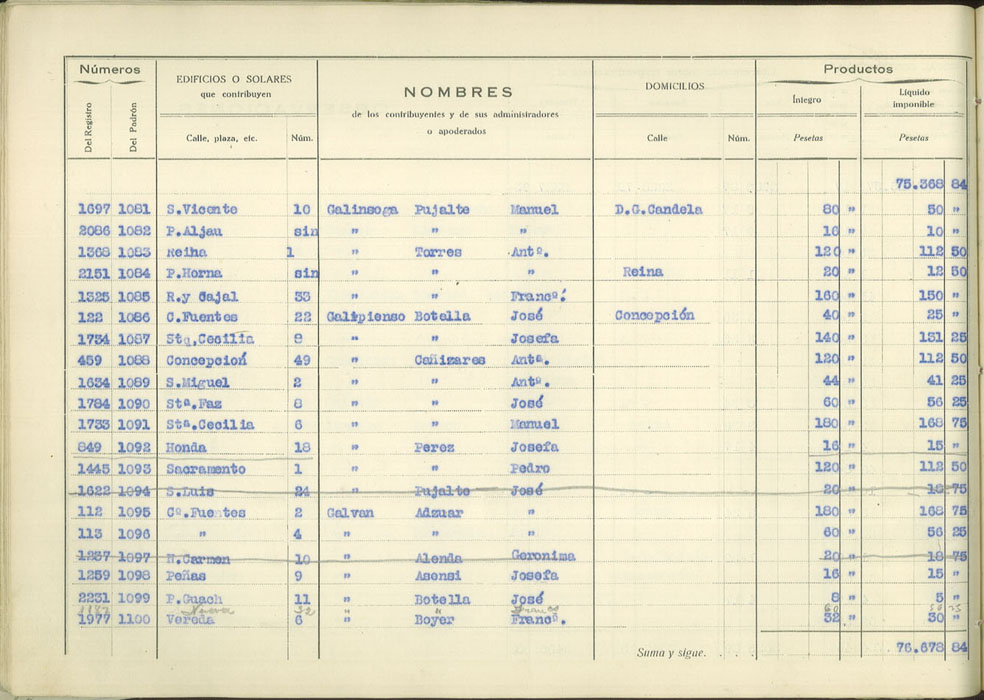 Números
EDIFICIOS O SOLARES
que contribuyen
NOMBRES
de los contribuyentes y de sus administradores
o apoderados
DOMICILIOS
Productos
Del Registro
Del Padrón
Calle, plaza, etc. Núm.
Calle Núm.
Íntegro
Pesetas
Líquido
imponible
Pesetas
75.368 84
1697 1081 S.Vicente 10 Galinsoga Pujalte Manuel D.G.Candela 80 " 50 "
2086 1082 P.Aljau sin " " " 16 " 10 "
1368 1083 Reiha 1 " Torres Antº. 120 " 112 50
2151 1084 P.Horna sin " " " Reina 20 " 12 50
1325 1085 R.y Cajal 33 " " Francº. 160 " 150 "
122 1086 C.Fuentes 22 Galipienso Botella José Concepción 40 " 25 "
1734 1087 Sta.Cecilia 8 " " Josefa 140 " 131 25
459 1088 Concepción 49 " Cañizares Antª. 120 " 112 50
1634 1089 S.Miguel 2 " " Antº. 44 " 41 25
1784 1090 Stª.Faz 8 " " José 60 " 56 25
1733 1091 Stª.Cecilia 6 " " Manuel 180 " 168 75
849 1092 Honda 18 " Perez Josefa 16 " 15 "
1445 1093 Sacramento 1 " " Pedro 120 " 112 50
1622 1094 S.Luis 24 " Pujalte José 20 " 18 75
112 1095 Cº.Fuentes 2 Galvan Adzuar " 180 " 168 75
113 1096 " 4 " " " 60 " 56 25
1237 1097 H.Carmen 10 " Alenda Geronima 20 " 18 75
1259 1098 Peñas 9 " Asensi Josefa 16 " 15 "
2231 1099 P.Guach 11 " Botella José 8 " 5 "
1187 Nueva 32 " " Franco 60 56 25
1977 1100 Vereda 6 " Boyer Francº. 32 " 30 "
Suma y sigue. 76.678 84